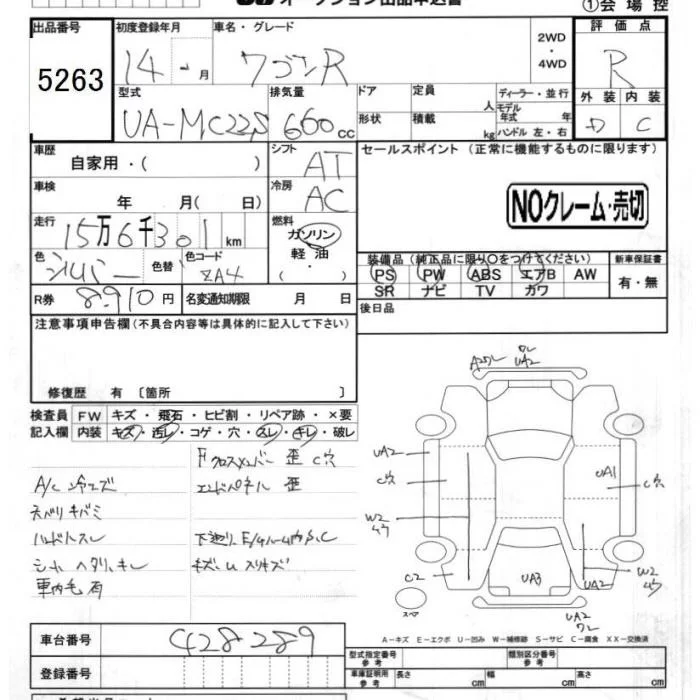 オークション出品申込書
①会場控
出品番号
5263
初度登録年月
14 - 月
車名・グレード
ワゴンR
2WD
・
4WD
評価点
R
外装 内装
D C
型式
UA-MC22S
排気量
660 cc
ドア
定員
人
ディーラー・並行
モデル年式 年
形状
積載
kg
ハンドル 左・右
車歴
自家用・( )
シフト
AT
セールスポイント (正常に機能するものに限ります)
車検
年 月( 日)
冷房
AC
NOクレーム・売切
走行
15万6千301km
燃料
ガソリン
軽油
( ・ )
色
シルバー
色替
色コード
ZA4
装備品 (純正品に限り〇をつけてください)
新車保証書
PS PW ABS エアB AW
SR ナビ TV カワ
有・無
R券
8,910円
名変通知期限 月 日
後日品
注意事項申告欄(不具合内容等は具体的に記入して下さい)
修復歴 有〔箇所 〕
検査員 FW キズ・飛石・ヒビ割・リペア跡・×要
記入欄 内装 キズ・汚レ・コゲ・穴・スレ・キレ・破レ
Fクロスメンバー 歪 C穴
A/C 冷エズ
エンドパネル 歪
天バリ キバミ
ハンドルスレ
シート ヘタリ、キレ
キズ・U スリキズ
車内毛有
UA2
UA2
C穴
UA1
C穴
W2
C2
UA3
UA2
W2
スペア
UA2
A-キズ E-エクボ U-凹み W-補修跡 S-サビ C-腐食 XX-交換済
車台番号
428289
登録番号
型式指定番号
参考
類別区分番号
参考
車庫証明用
参考
長さ cm
幅 cm
高さ cm